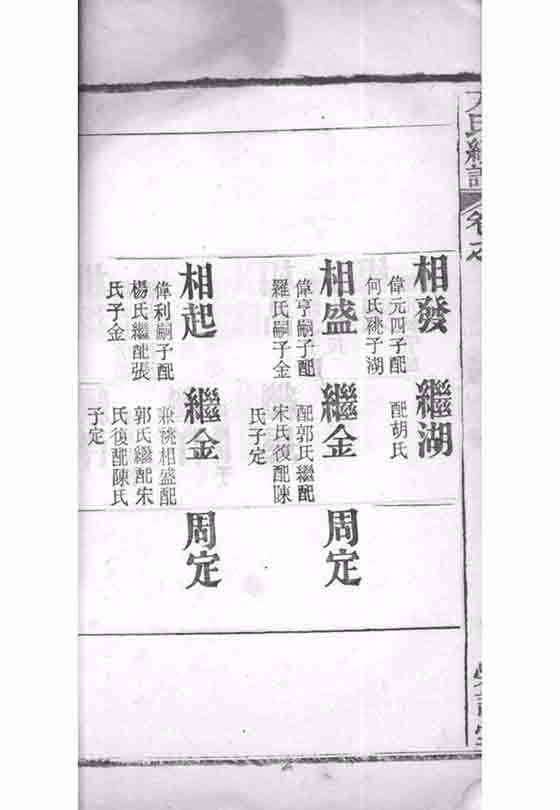 氏總譜
相發
偉元四子配
何氏祧子湖
繼湖
配胡氏
相盛
偉亨嗣子配
羅氏嗣子金
繼金
配郭氏繼配
宋氏復配陳
氏子定
周定
相起
偉利嗣子配
楊氏繼配張
氏子金
繼金
兼祧相盛配
郭氏繼配宋
氏復配陳氏
子定
周定